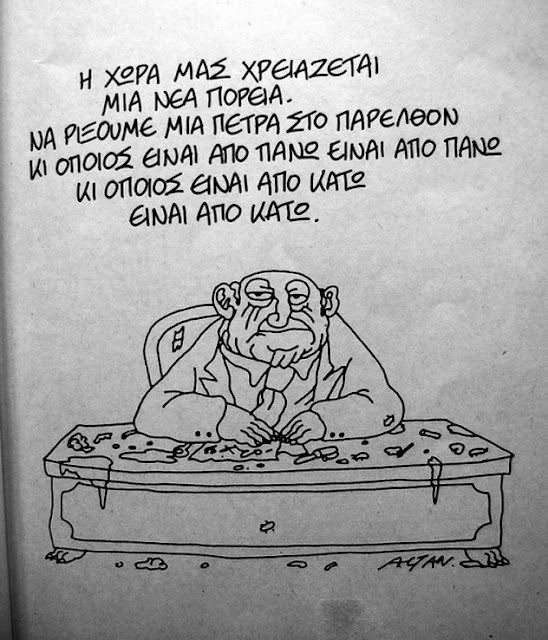 Η ΧΩΡΑ ΜΑΣ ΧΡΕΙΑΖΕΤΑΙ
ΜΙΑ ΝΕΑ ΠΟΡΕΙΑ.
ΝΑ ΡΙΞΟΥΜΕ ΜΙΑ ΠΕΤΡΑ ΣΤΟ ΠΑΡΕΛΘΟΝ
ΚΙ ΟΠΟΙΟΣ ΕΙΝΑΙ ΑΠΟ ΠΑΝΩ ΕΙΝΑΙ ΑΠΟ ΠΑΝΩ
ΚΙ ΟΠΟΙΟΣ ΕΙΝΑΙ ΑΠΟ ΚΑΤΩ
ΕΙΝΑΙ ΑΠΟ ΚΑΤΩ.
ALTAN.